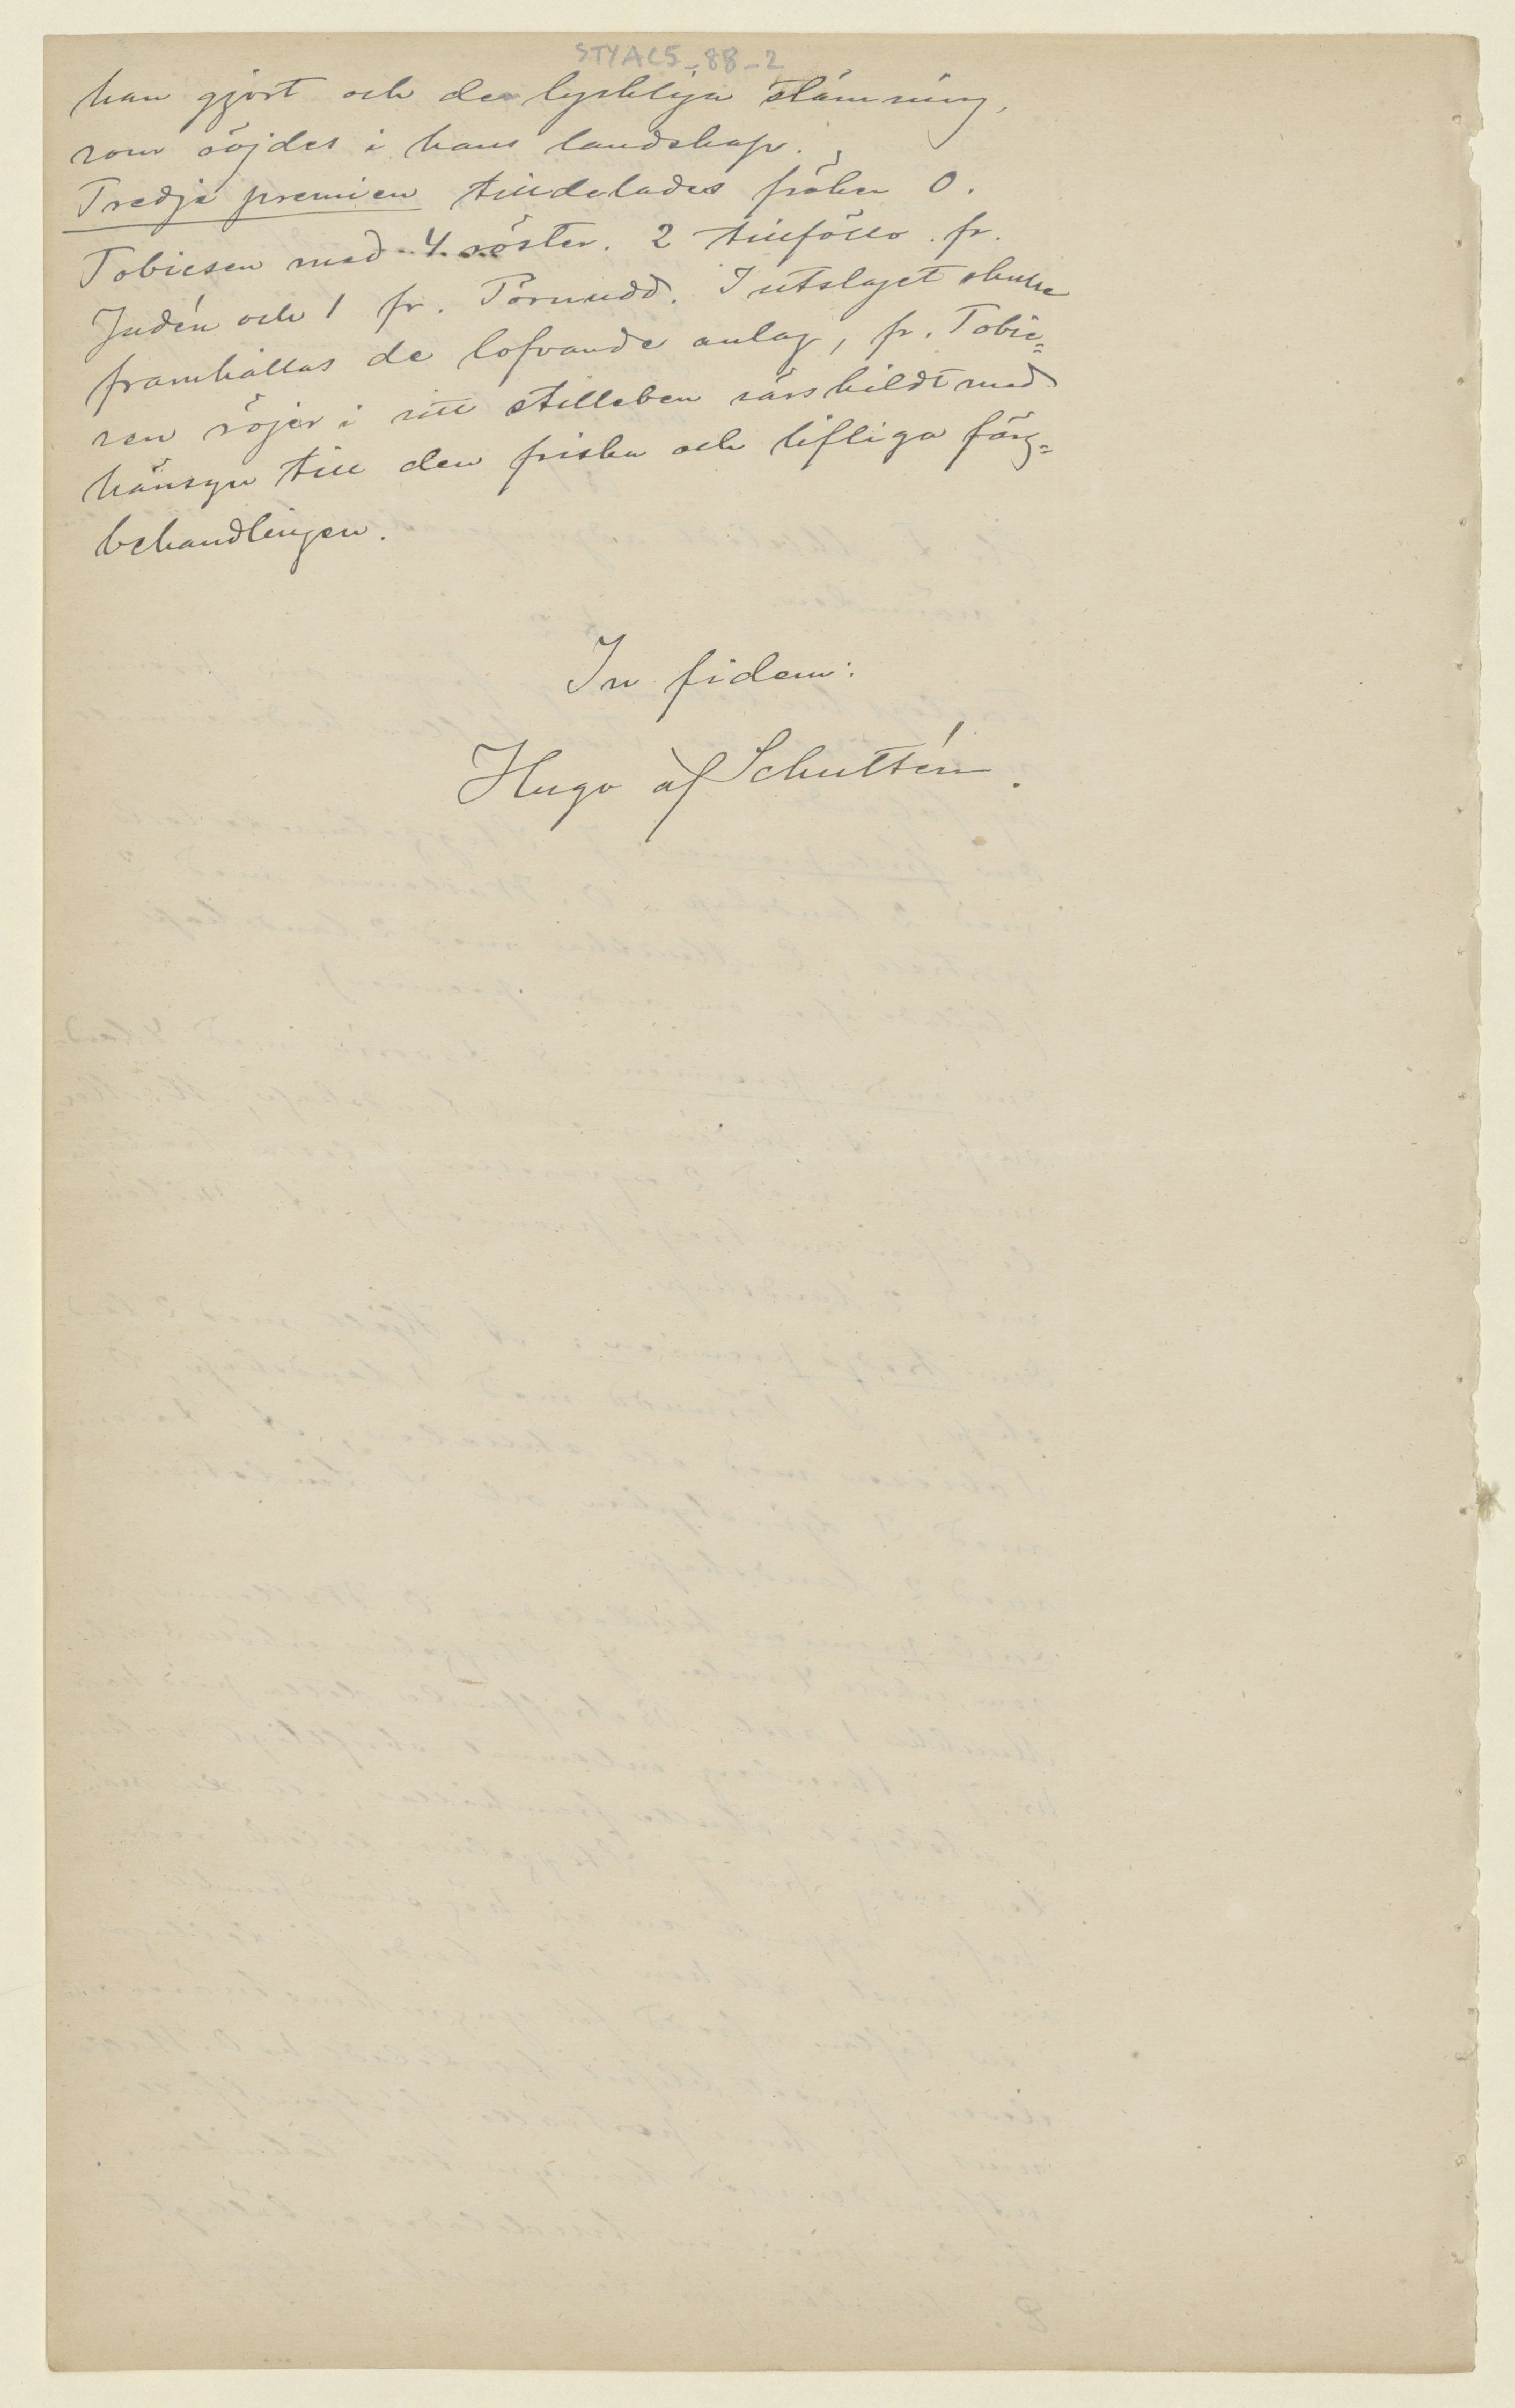 STYAC5_8B_2
han gjort och de lyckliga stämning,
som röjdes i hans landskap.
Tredje premien tilldelades fröken O.
Tobiesen med 4 röster. 2 tillföllo fr.
Judén och 1 fr. Törnudd. I utslaget skulle
framhållas de lofvande anlag, fr. Tobie=
sen röjer i sitt stilleben särskildt med
hänsyn till den friska och lifliga färg=
behandlingen.
In fidem:
Hugo af Schultén.